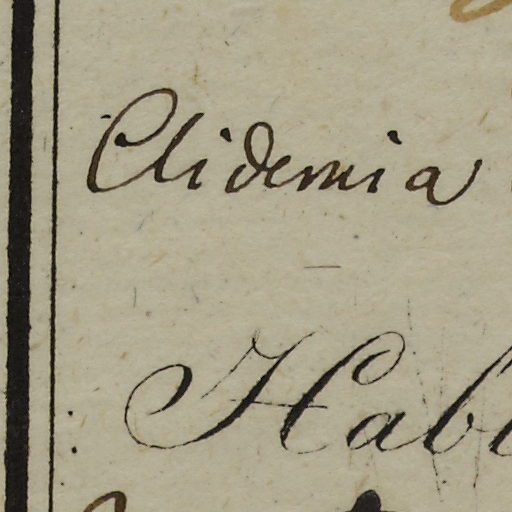 Clidemia
Hab